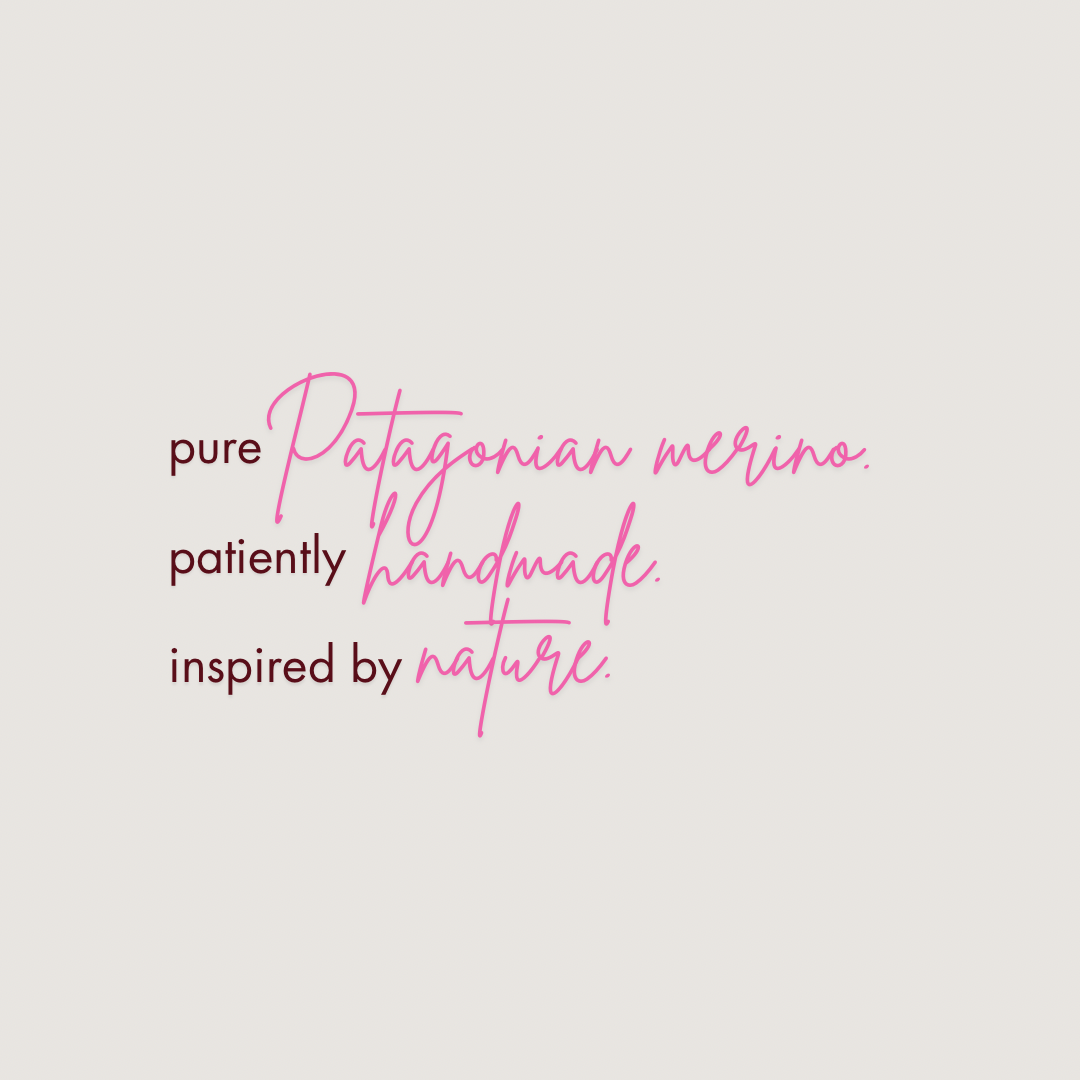 pure Patagonian merino.
patiently handmade.
inspired by nature.